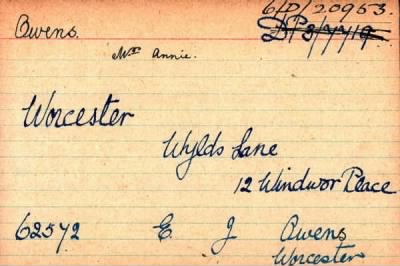 6/D/20953.
Owens.
DP3/7719
Mrs Annie.
Worcester
Wylds Lane
12 Windsor Place
62572 E J Owens
Worcester